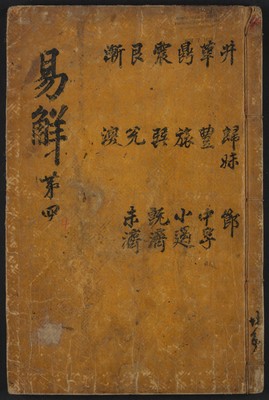 井 歸妹 節
革 豐 中孚
鼎 旅 小過
震 巽 既濟
艮 兌 未濟
漸 渙
易觧 第四